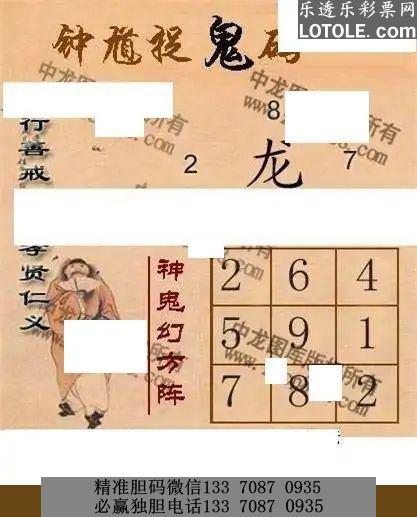 乐透乐彩票网
LOTOLE.COM
钟馗捉鬼码
行善戒
8
2
龙
7
孝贤仁义
神鬼幻方阵
2 6 4
5 9 1
7 8 2
中龙图库版权所有
精准胆码微信133 7087 0935
必赢独胆电话133 7087 0935